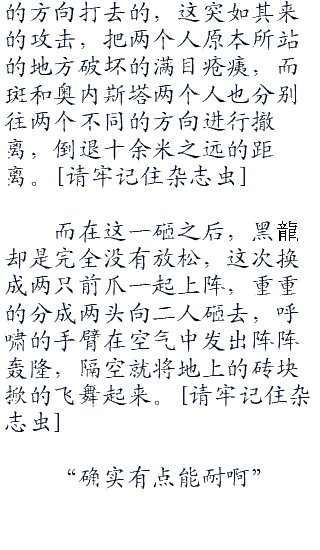 的方向打去的，这突如其来
的攻击，把两个人原本所站
的地方破坏的满目疮痍，而
斑和奥内斯塔两个人也分别
往两个不同的方向进行撤
离，倒退十余米之远的距
离。[请牢记住杂志虫]
而在这一砸之后，黑龍
却是完全没有放松，这次换
成两只前爪一起上阵，重重
的分成两头向二人砸去，呼
啸的手臂在空气中发出阵阵
轰隆，隔空就将地上的砖块
掀的飞舞起来。[请牢记住杂
志虫]
“确实有点能耐啊”